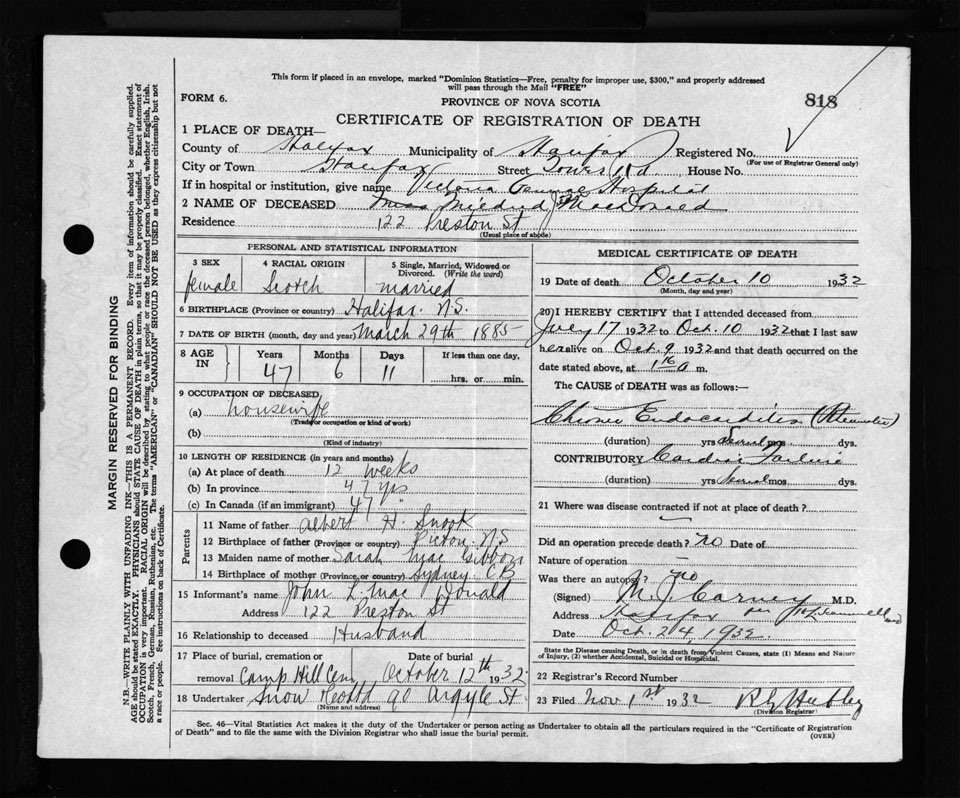 This form if placed in an envelope, marked "Dominion Statistics—Free, penalty for improper use, $300," and properly addressed
will pass through the Mail "FREE"
FORM 6.
PROVINCE OF NOVA SCOTIA
818
CERTIFICATE OF REGISTRATION OF DEATH
1 PLACE OF DEATH—
County of Halifax Municipality of Halifax Registered No.
(For use of Registrar General only)
City or Town Halifax Street Tower Rd House No.
If in hospital or institution, give name Victoria General Hospital
2 NAME OF DECEASED Mildred J MacDonald
Residence 122 Preston St
(Usual place of abode)
PERSONAL AND STATISTICAL INFORMATION
3 SEX 4 RACIAL ORIGIN 5 Single, Married, Widowed or Divorced. (Write the word)
female Scotch married
6 BIRTHPLACE (Province or country) Halifax N.S.
7 DATE OF BIRTH (month, day and year) March 29th 1885
8 AGE IN Years Months Days If less than one day,
47 6 11 hrs. or min.
9 OCCUPATION OF DECEASED,
(a) housewife
(Trade or occupation or kind of work)
(b)
(Kind of industry)
10 LENGTH OF RESIDENCE (in years and months)
(a) At place of death 12 weeks
(b) In province 47 yrs
(c) In Canada (if an immigrant) 47 "
Parents
11 Name of father Albert H. Snook
12 Birthplace of father (Province or country) Pictou N.S
13 Maiden name of mother Sarah MacGibbon
14 Birthplace of mother (Province or country) Sydney C B
15 Informant's name John L. MacDonald
Address 122 Preston St
16 Relationship to deceased Husband
17 Place of burial, cremation or Date of burial
removal Camp Hill Cem October 12th 1932
18 Undertaker Snow 90 Argyle St
(Name and address)
MEDICAL CERTIFICATE OF DEATH
19 Date of death October 10 1932
(Month, day and year)
20 I HEREBY CERTIFY that I attended deceased from
July 17 1932 to Oct. 10 1932 that I last saw
her alive on Oct. 9 1932 and that death occurred on the
date stated above, at a m.
The CAUSE of DEATH was as follows:
Chronic Endocarditis (Rheumatic)
(duration) yrs Several mos. dys.
CONTRIBUTORY Cardiac Failure
(duration) yrs Several mos. dys.
21 Where was disease contracted if not at place of death?
Did an operation precede death? no Date of
Nature of operation —
Was there an autopsy? no
(Signed) M. J. Carney M.D.
Address Halifax per
Date Oct. 24, 1932.
State the Disease causing Death, or in death from Violent Causes, state (1) Means and Nature
of Injury, (2) whether Accidental, Suicidal or Homicidal.
22 Registrar's Record Number
23 Filed Nov 1st 1932
(Division Registrar)
Sec. 46—Vital Statistics Act makes it the duty of the Undertaker or person acting as Undertaker to obtain all the particulars required in the "Certificate of Registration
of Death" and to file the same with the Division Registrar who shall issue the burial permit.
(OVER)
MARGIN RESERVED FOR BINDING
N.B.—WRITE PLAINLY WITH UNFADING INK—THIS IS A PERMANENT RECORD. Every item of information should be carefully supplied.
AGE should be stated EXACTLY. PHYSICIANS should STATE CAUSE OF DEATH in plain terms, so that it may be properly classified. Exact statement of
OCCUPATION is very important. RACIAL ORIGIN will be described by stating to what people or race the deceased person belonged, whether English, Irish,
Scotch, French, German, Russian, Ruthenian, etc. The terms "AMERICAN" or "CANADIAN" SHOULD NOT BE USED as they express citizenship but not
a race or people. See instructions on back of Certificate.